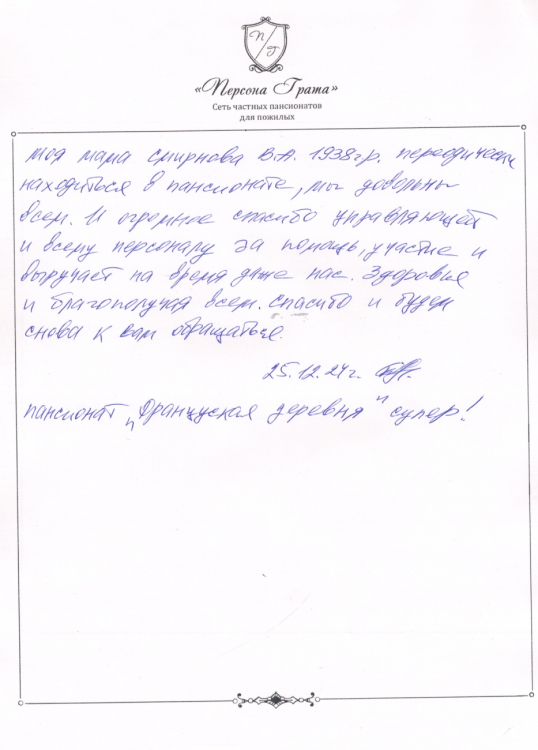 П Г
«Персона Грата»
Сеть частных пансионатов
для пожилых
Моя мама Смирнова В.А. 1938гр. переодически
находиться в пансионате, мы довольны
всем. И огромное спасибо управляющей
и всему персоналу за помощь, участие и
выручает на время даже нас. Здоровья
и благополучая всем. Спасибо и будем
снова к вам обращаться.
25.12.24г.
пансионат „Француская деревня" супер!